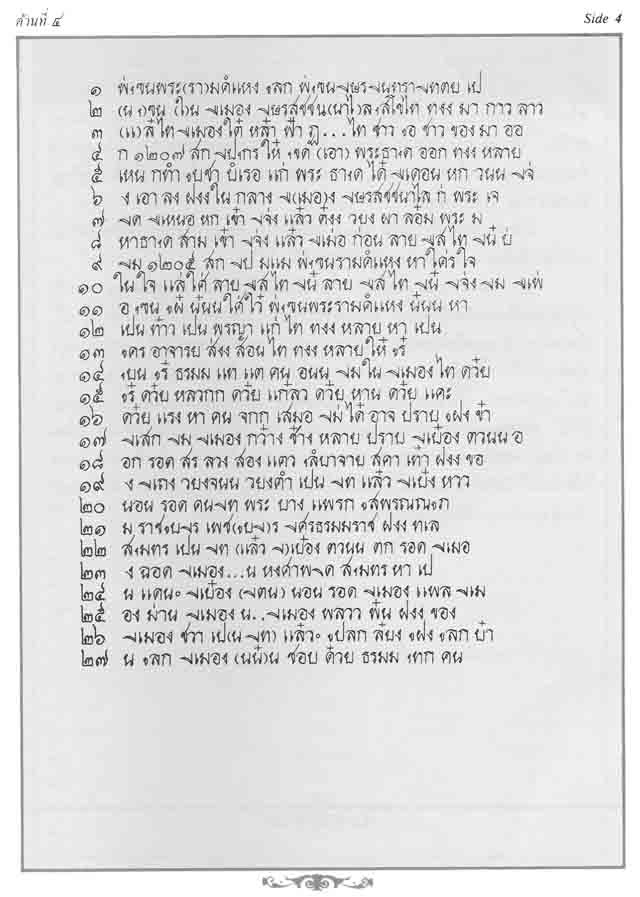 ด้านที่ ๔
Side 4
๑ พ่ขุนพระ(รา)มคำแหง ลูก พ่ขุนศรีอินทราทิตย เป
๒ (น ข)ุน (ใ)น เมือง ศรีสชชน(นาไ)ลสุโขไท ทงง มา กาว ลาว
๓ (แ)ล๋ไทเมืองใต้ หล้า ฟ้า ฏ...ไท ชาว อู ชาว ของ มา ออ
๔ ก ๑๒๐๗ สก ปีกุร ให้ ขุด (เอา) พระธาตุ ออก ทงง หลาย
๕ เหน กทำ บูชา บำเรอ แก่ พระ ธาตุ ได้ เดือน หก วนน จึ่
๖ ง เอา ลง ฝงงใน กลาง เ(มือ)ง ศรีสชชนาไล ก่ พระ เจ
๗ ดี เหนือ หก เข้า จึ่ง แล้ว ต้งง วยง ผา ล้อม พระ ม
๘ หาธาตุ สาม เข้า จึ่ง แล้ว เมื่อ ก่อน ลาย สืไท นี้ บ่
๙ มี ๑๒๐๕ สก ปี มแม พ่ขุนรามคำแหง หา ใคร่ใจ
๑๐ ในใจ แล่ใส่ ลาย สืไท นี้ ลาย สืไท นี้ จึ่ง มี เพื่
๑๑ อ ขุน ผู้ น้นนใส่ไว้ พ่ขุนพระรามคำแหง น้นน หา
๑๒ เปน ท้าว เปน พรญา แก่ ไท ทงง หลาย หา เปน
๑๓ ครู อาจารย สงง ส้อน ไท ทงง หลายให้ รู้
๑๔ บุน รู้ ธรมม แท แต่ คน อนน มีใน เมืองไท ด้วย
๑๕ รู้ ด้วย หลวกก ด้วย แก้ลว ด้วย หาน ด้วย แคะ
๑๖ ด้วย แรง หา คน จกก เสมอ มิได้ อาจ ปราบ ฝูง ข้า
๑๗ เสิก มี เมือง กว้าง ช้าง หลาย ปราบ เบื้อง ตวนน อ
๑๘ อก รอด สรลวง สอง แคว ลุํบาจาย สคา เท้า ฝงง ขอ
๑๙ ง เถิง วยงจนน วยงคำ เปน ที แล้ว เบื้ง หวว
๒๐ นอน รอด คนที พระ บาง แพรก สุพรณณภู
๒๑ ม ราชบุรี เพช(บุ)รี ศรีธรมมราช ฝงง ทเล
๒๒ สมุทร เปน ที (แล้ว เ)บื้อง ตวนน ตก รอด เมือ
๒๓ ง ฉอด เมือง...น หงศาพดี สมุทร หา เป
๒๔ น แดนะ เบื้อง (ตีน) นอน รอด เมือง แพล เมื
๒๕ อง ม่าน เมือง น..เมือง พลวว พ้น ฝงง ของ
๒๖ เมือง ชวา เป(น ที) แล้วะ ปลูก ลี้ยง ฝูง ลูก บ้า
๒๗ น ลูก เมือง (นนั้)น ชอบ ด้วย ธรมม ทุก คน